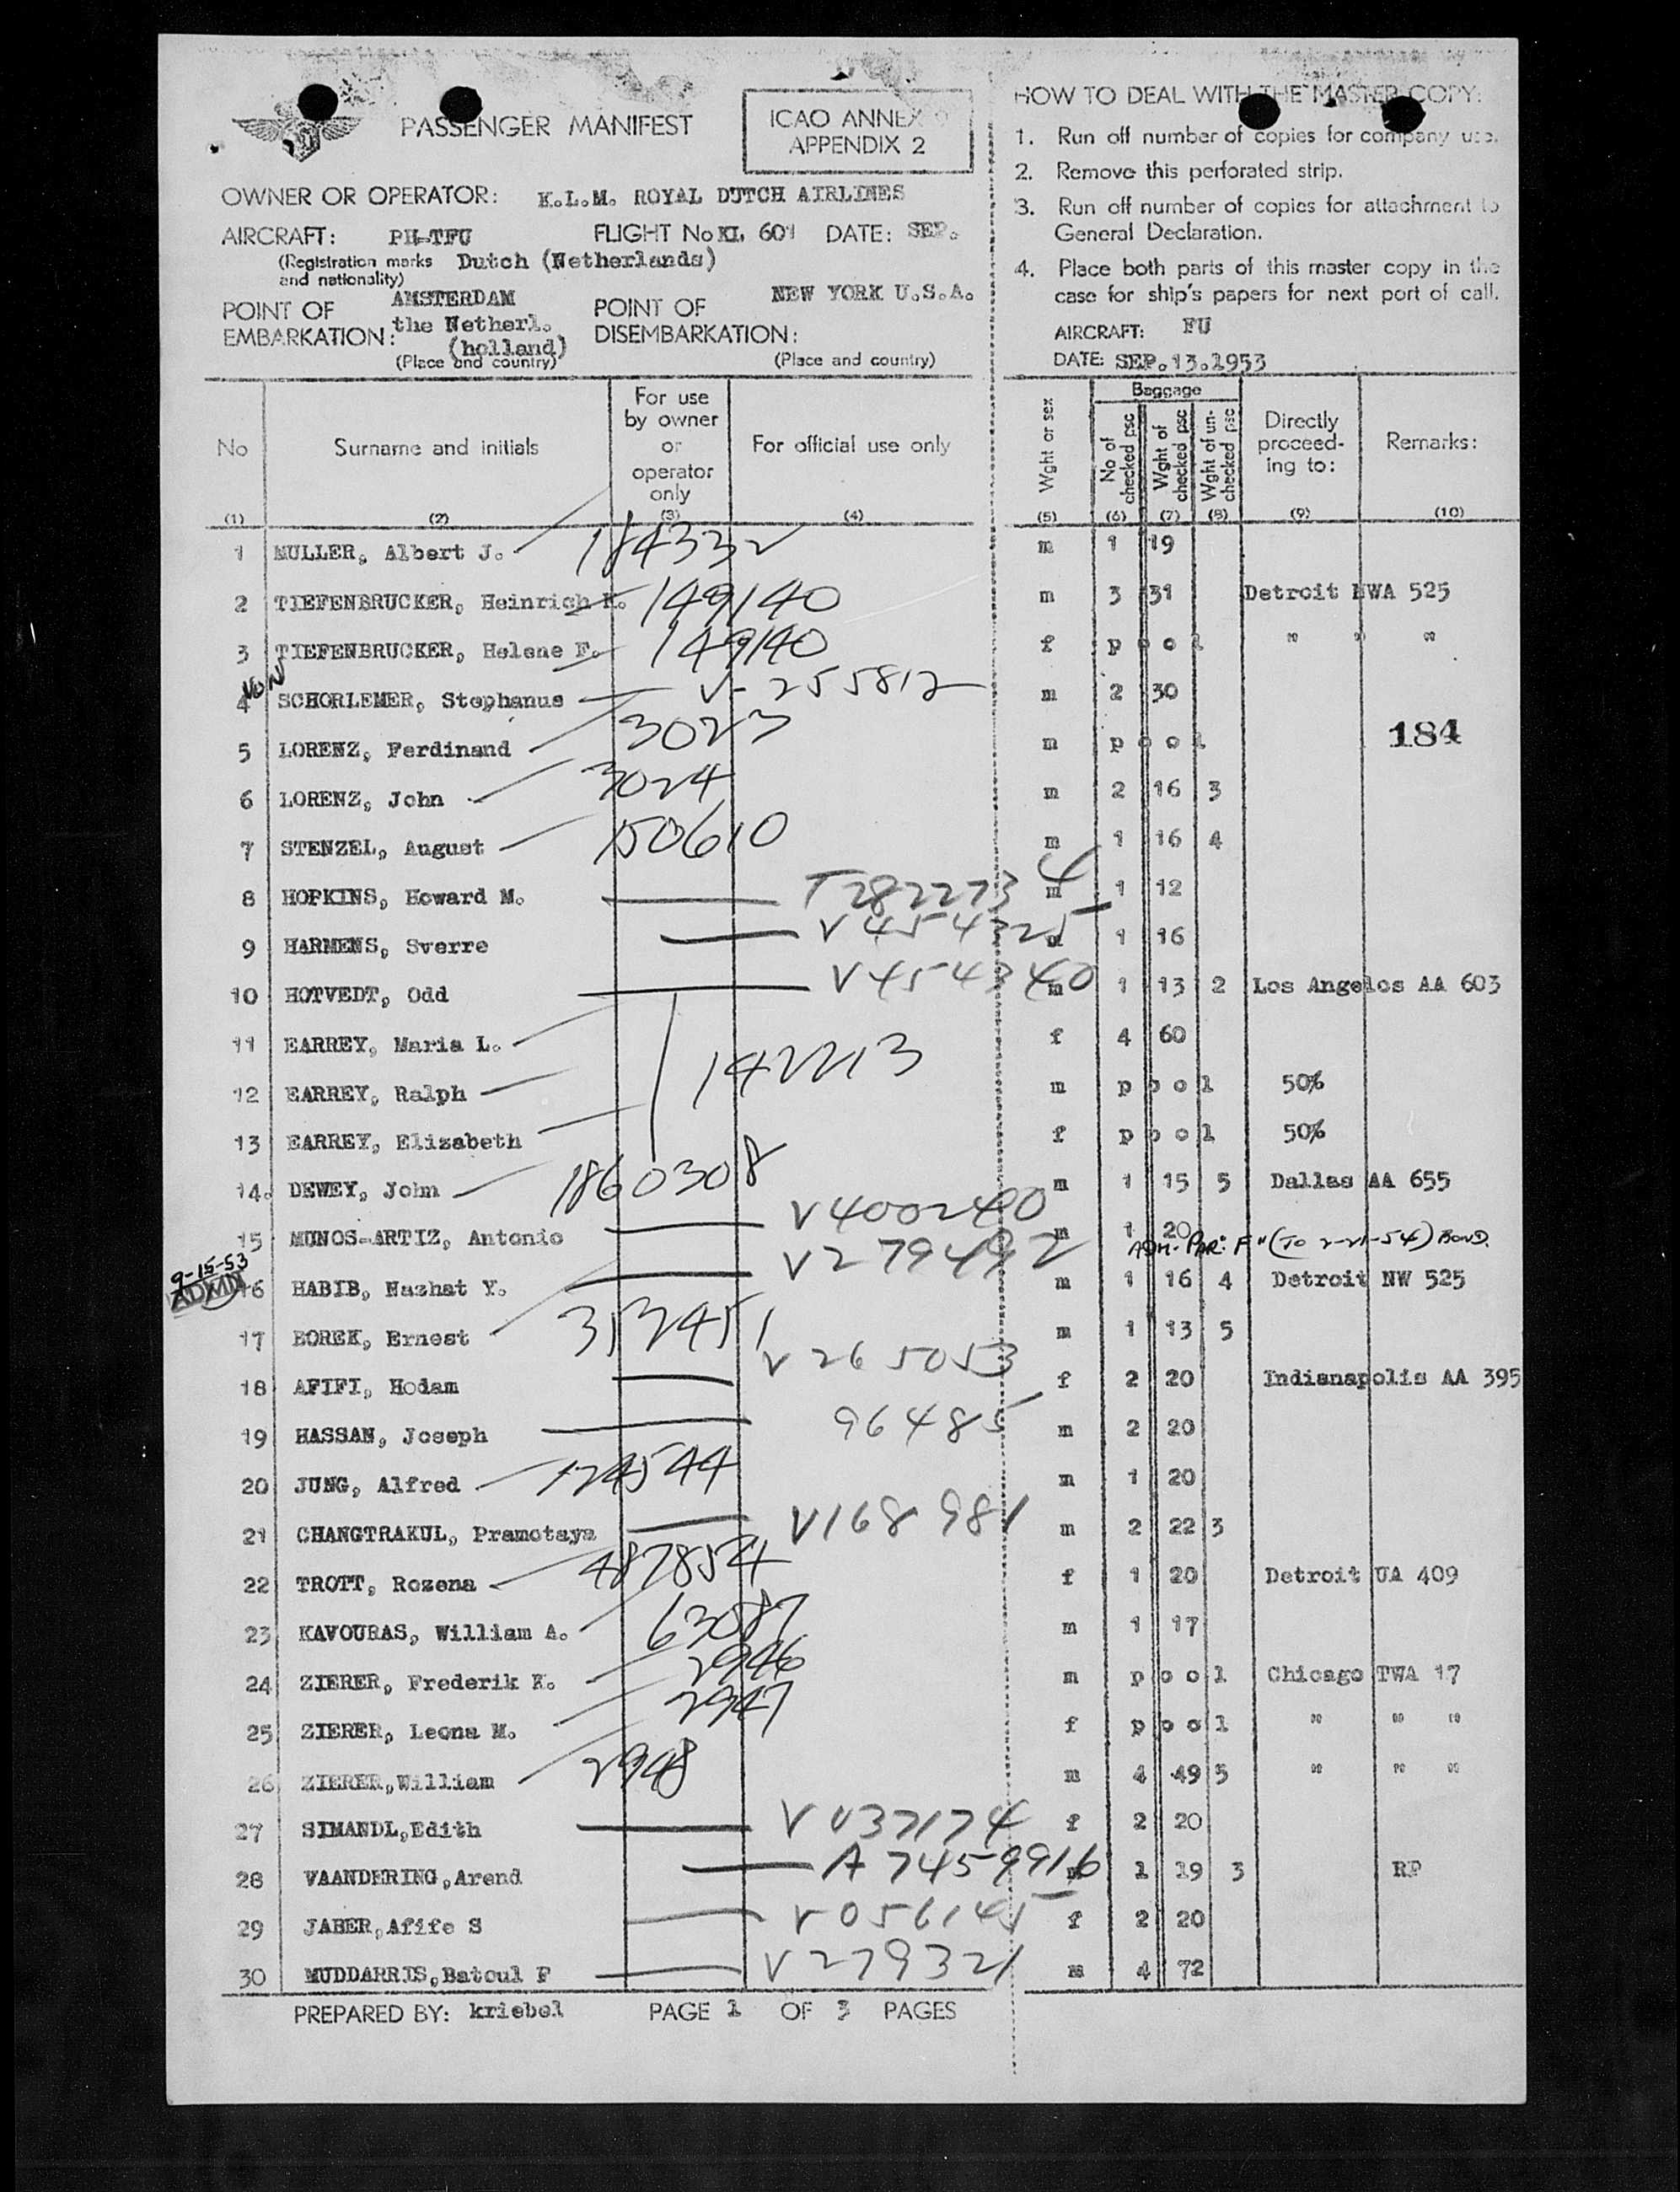 PASSENGER MANIFEST
ICAO ANNEX 9
APPENDIX 2
OWNER OR OPERATOR: K.L.M. ROYAL DUTCH AIRLINES
AIRCRAFT: PH-TFU FLIGHT No KL 601 DATE: SEP.
(Registration marks and nationality) Dutch (Netherlands)
POINT OF EMBARKATION: AMSTERDAM the Netherl. (holland)
(Place and country)
POINT OF DISEMBARKATION: NEW YORK U.S.A.
(Place and country)
HOW TO DEAL WITH THE MASTER COPY:
1. Run off number of copies for company use.
2. Remove this perforated strip.
3. Run off number of copies for attachment to
General Declaration.
4. Place both parts of this master copy in the
case for ship's papers for next port of call.
AIRCRAFT: FU
DATE: SEP.13.1953
No Surname and initials For use by owner or operator only For official use only Wght or sex Baggage No of checked psc Wght of checked psc Wght of un-checked psc Directly proceed-ing to: Remarks:
(1) (2) (3) (4) (5) (6) (7) (8) (9) (10)
1 MULLER, Albert J. 184332 m 1 19
2 TIEFENBRUCKER, Heinrich K. 149140 m 3 31 Detroit NWA 525
3 TIEFENBRUCKER, Helene F. 149140 f p o o l " " "
4 VON SCHORLEMER, Stephanus V-255812 m 2 30
5 LORENZ, Ferdinand 3023 m p o o l 184
6 LORENZ, John 3024 m 2 16 3
7 STENZEL, August 150610 m 1 16 4
8 HOPKINS, Howard M. T282273 4 m 1 12
9 HARMENS, Sverre V454325 m 1 16
10 HOTVEDT, Odd V454340 m 1 13 2 Los Angelos AA 603
11 EARREY, Maria L. f 4 60
12 EARREY, Ralph 142213 m p o o l 50%
13 EARREY, Elizabeth f p o o l 50%
14. DEWEY, John 1860308 m 1 15 5 Dallas AA 655
15 MUNOS-ARTIZ, Antonio V400240 m 1 20
ADM. PAR. F" (TO 2-21-54) BOND.
9-15-53
ADMN
16 HABIB, Nazhat Y. V279492 m 1 16 4 Detroit NW 525
17 BOREK, Ernest 313451 m 1 13 5
18 AFIFI, Hodam V265053 f 2 20 Indianapolis AA 395
19 HASSAN, Joseph 96485 m 2 20
20 JUNG, Alfred 124544 m 1 20
21 CHANGTRAKUL, Pramotaya V168981 m 2 22 3
22 TROTT, Rozena 487854 f 1 20 Detroit UA 409
23 KAVOURAS, William A. 63087 m 1 17
24 ZIERER, Frederik K. 2946 m p o o l Chicago TWA 17
25 ZIERER, Leona M. 2947 f p o o l " " "
26 ZIERER,William 2948 m 4 49 5 " " "
27 SIMANDL,Edith V037174 f 2 20
28 VAANDERING,Arend A7459916 m 1 19 3 RP
29 JABER,Afife S V056145 f 2 20
30 MUDDARRIS,Batoul F V279321 m 4 72
PREPARED BY: kriebel PAGE 1 OF 3 PAGES